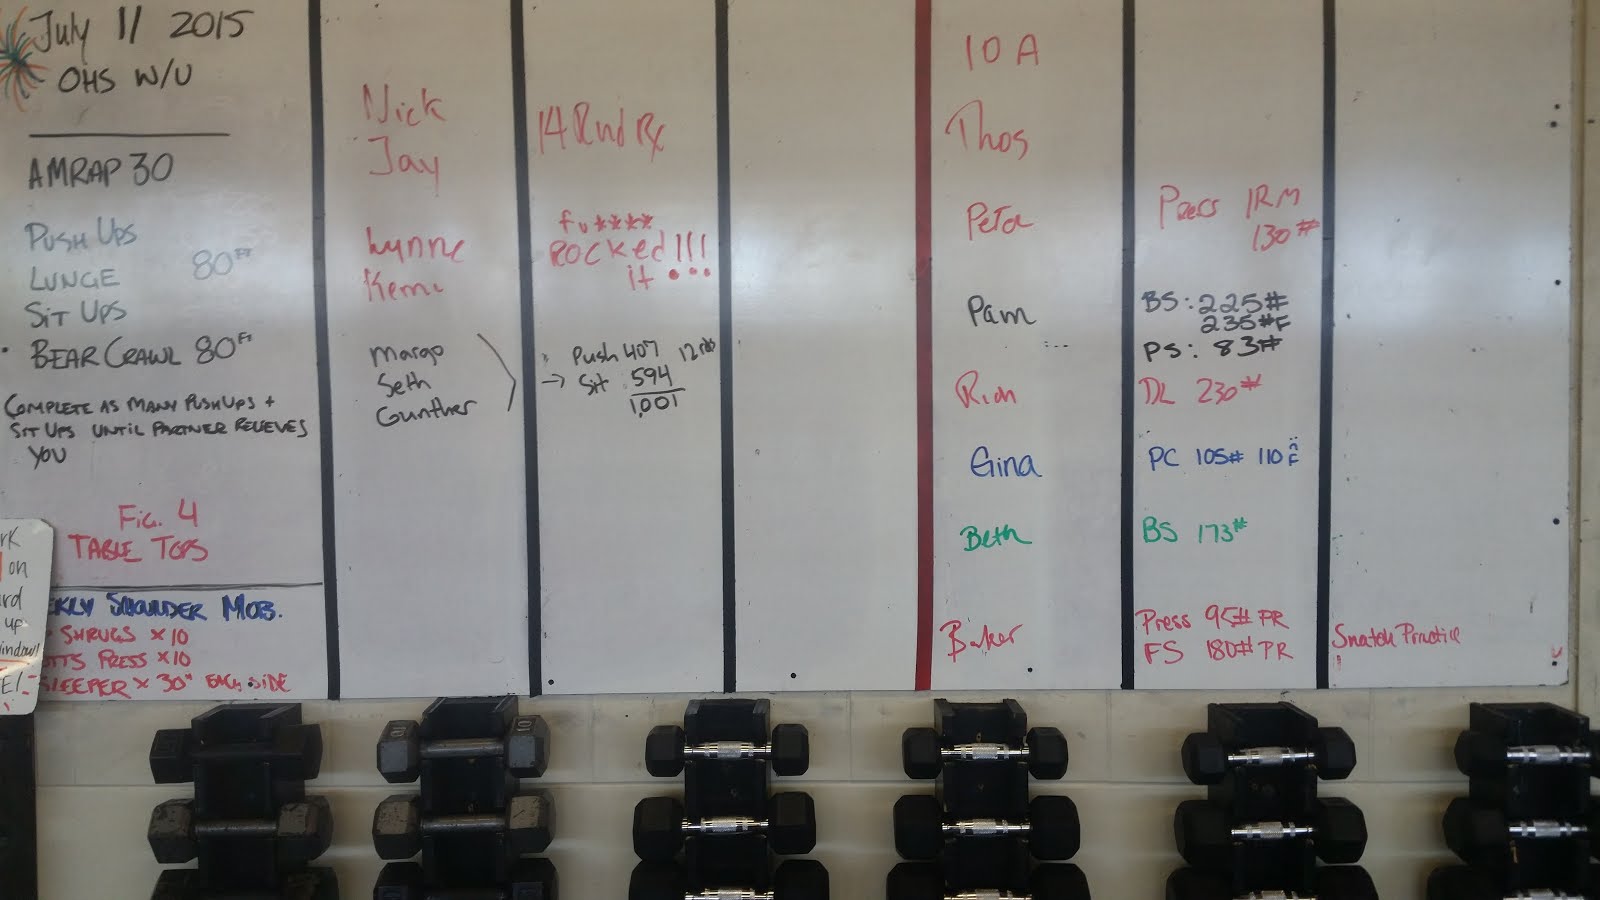 July 11 2015
OHS W/U
AMRAP 30
PUSH UPS
LUNGE 80FT
SIT UPS
BEAR CRAWL 80FT
COMPLETE AS MANY PUSHUPS +
SIT UPS UNTIL PARTNER RELIEVES
YOU
FIG. 4
TABLE TOPS
EKLY SHOULDER MOB.
SHRUGS x 10
PRESS x 10
SLEEPER x 30" EACH SIDE
RK
on
rd
up
window
E!
Nick
Jay
14 Rnd Rx
Lynne
fu****
ROCKED!!!
it
Margo
Seth
Gunther
Push 407 12 rds
→ Sit 594
1,001
10 A
Thos
Peta
Press 1RM
130#
Pam
BS: 225#
235#F
PS: 83#
DL 230#
Gina
PC 105# 110 F
Beth
BS 173#
Baker
Press 95# PR
FS 180# PR
Snatch Practice
10
10